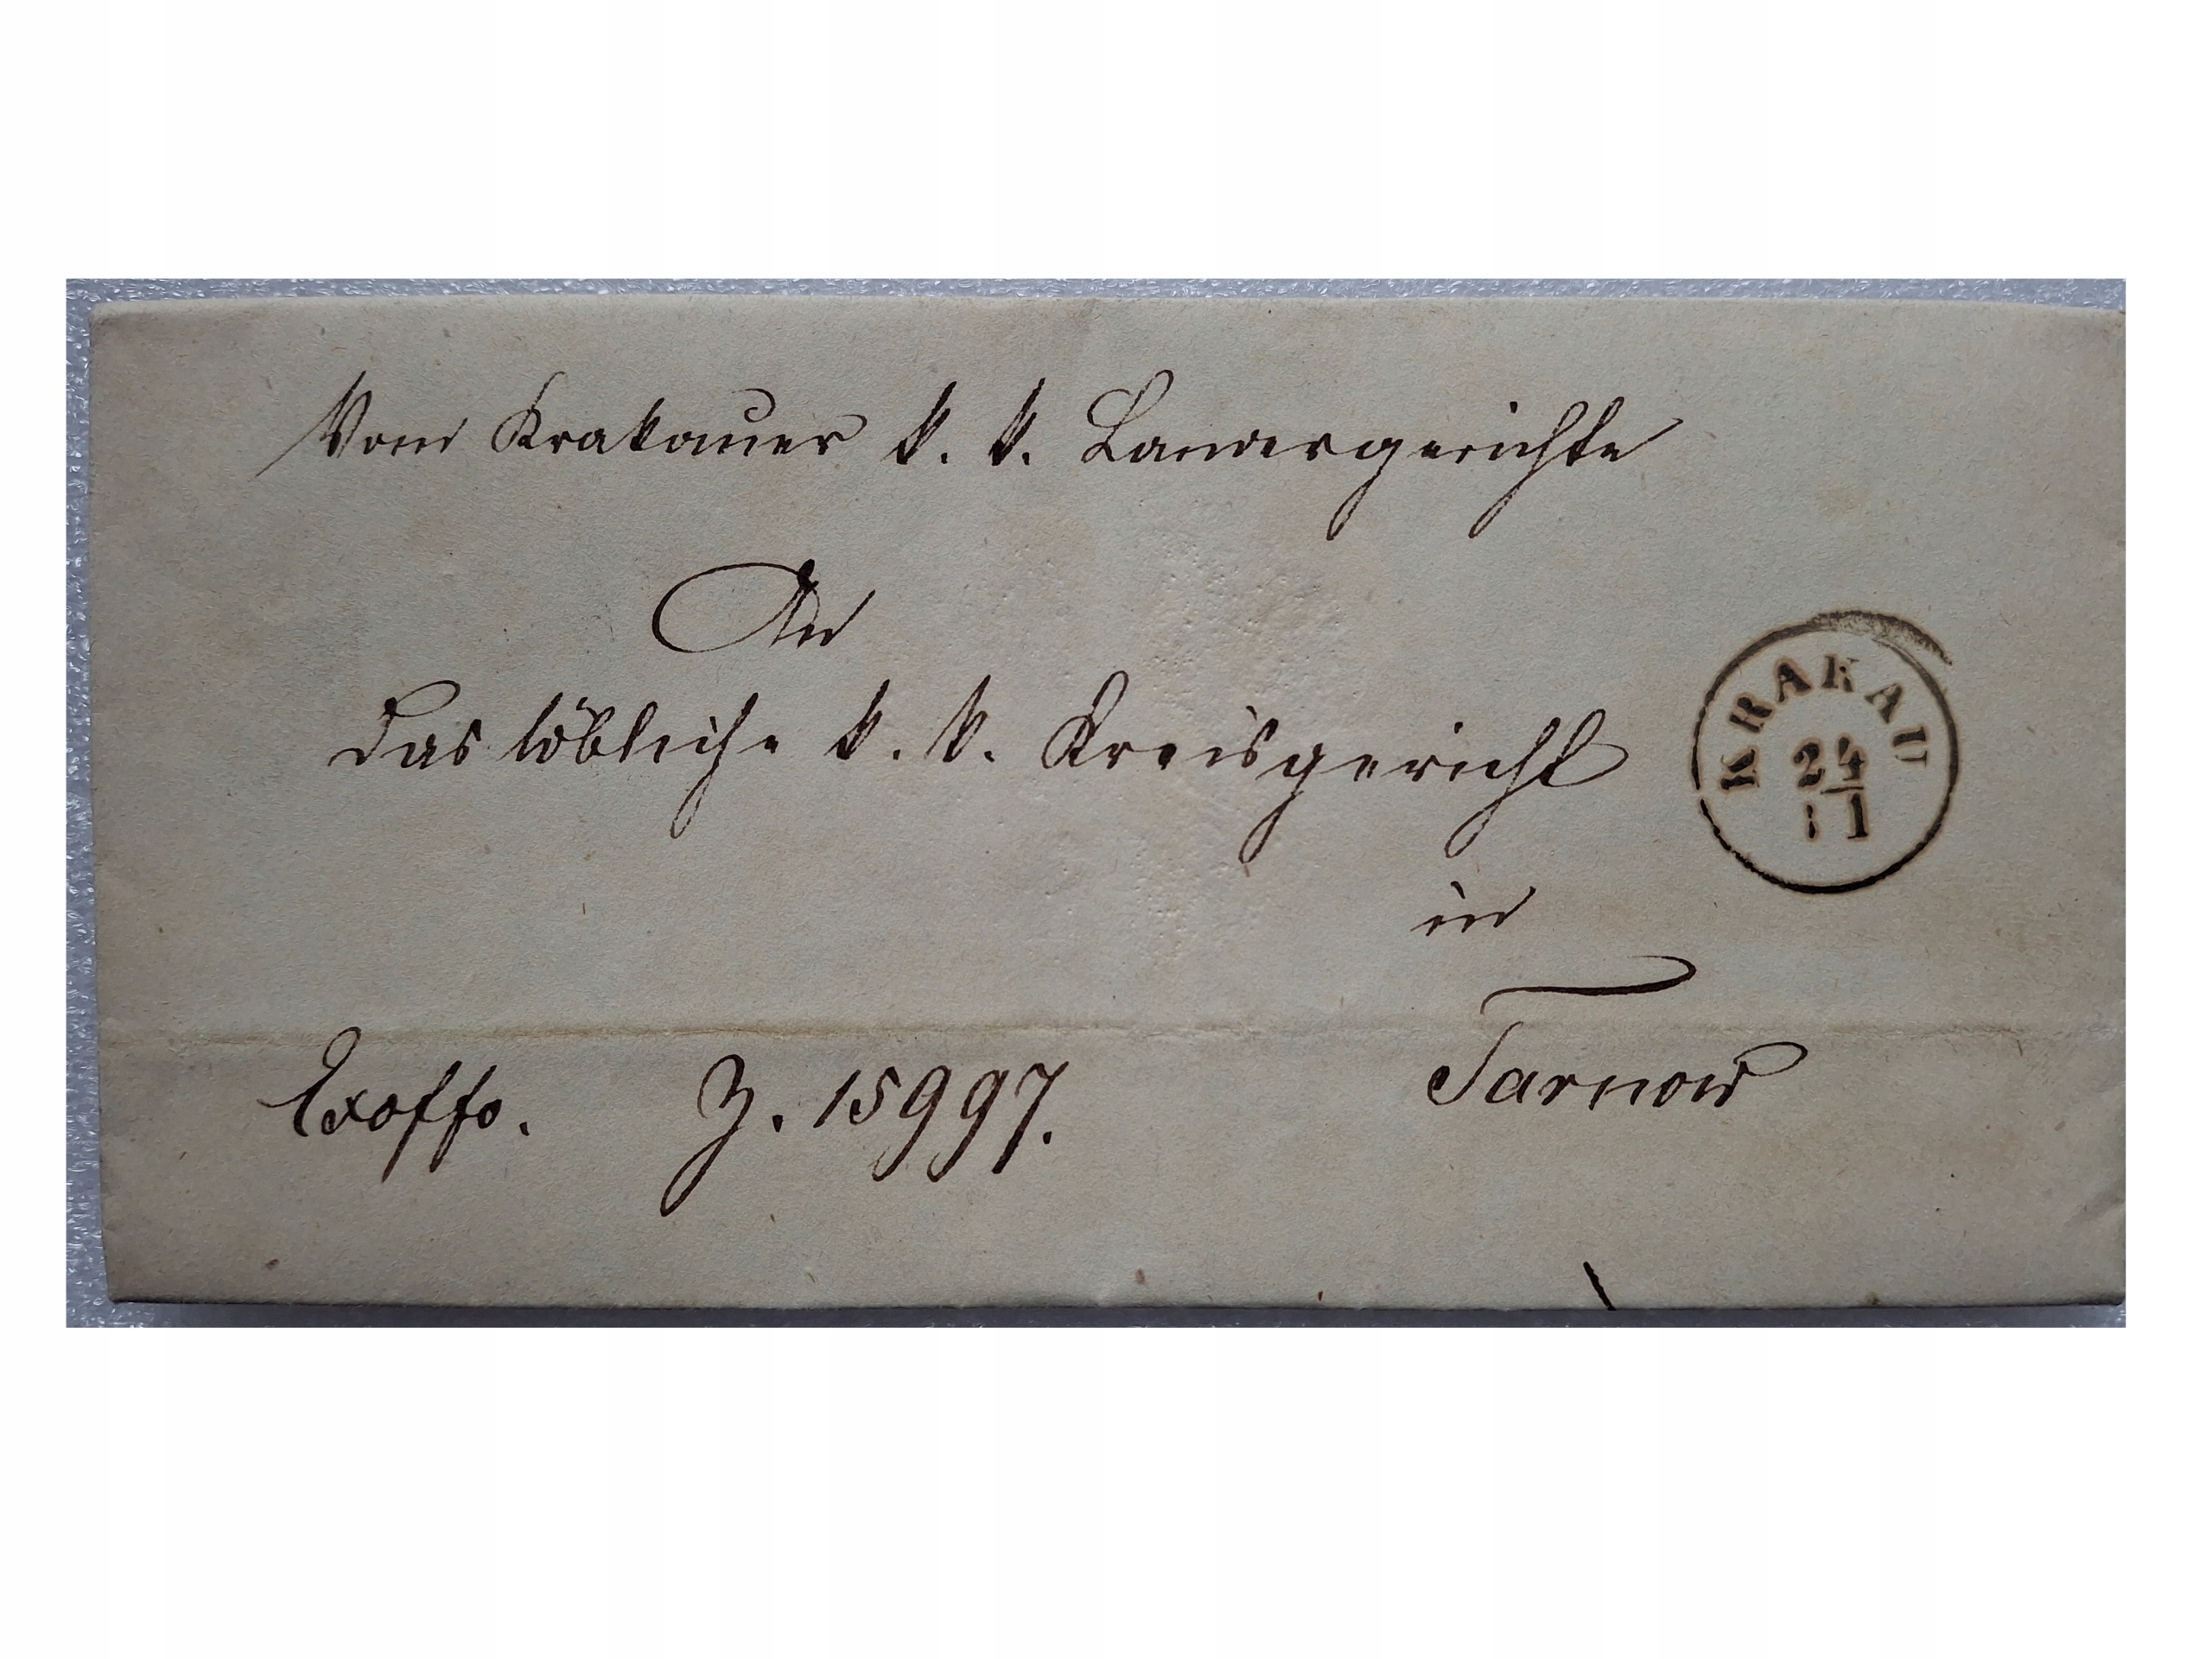 Vom Krakauer k. k. Landesgerichte
An
das löbliche k. k. Kreisgericht
KRAKAU
24
11
in
Tarnow
Exoffo. Z. 15997.